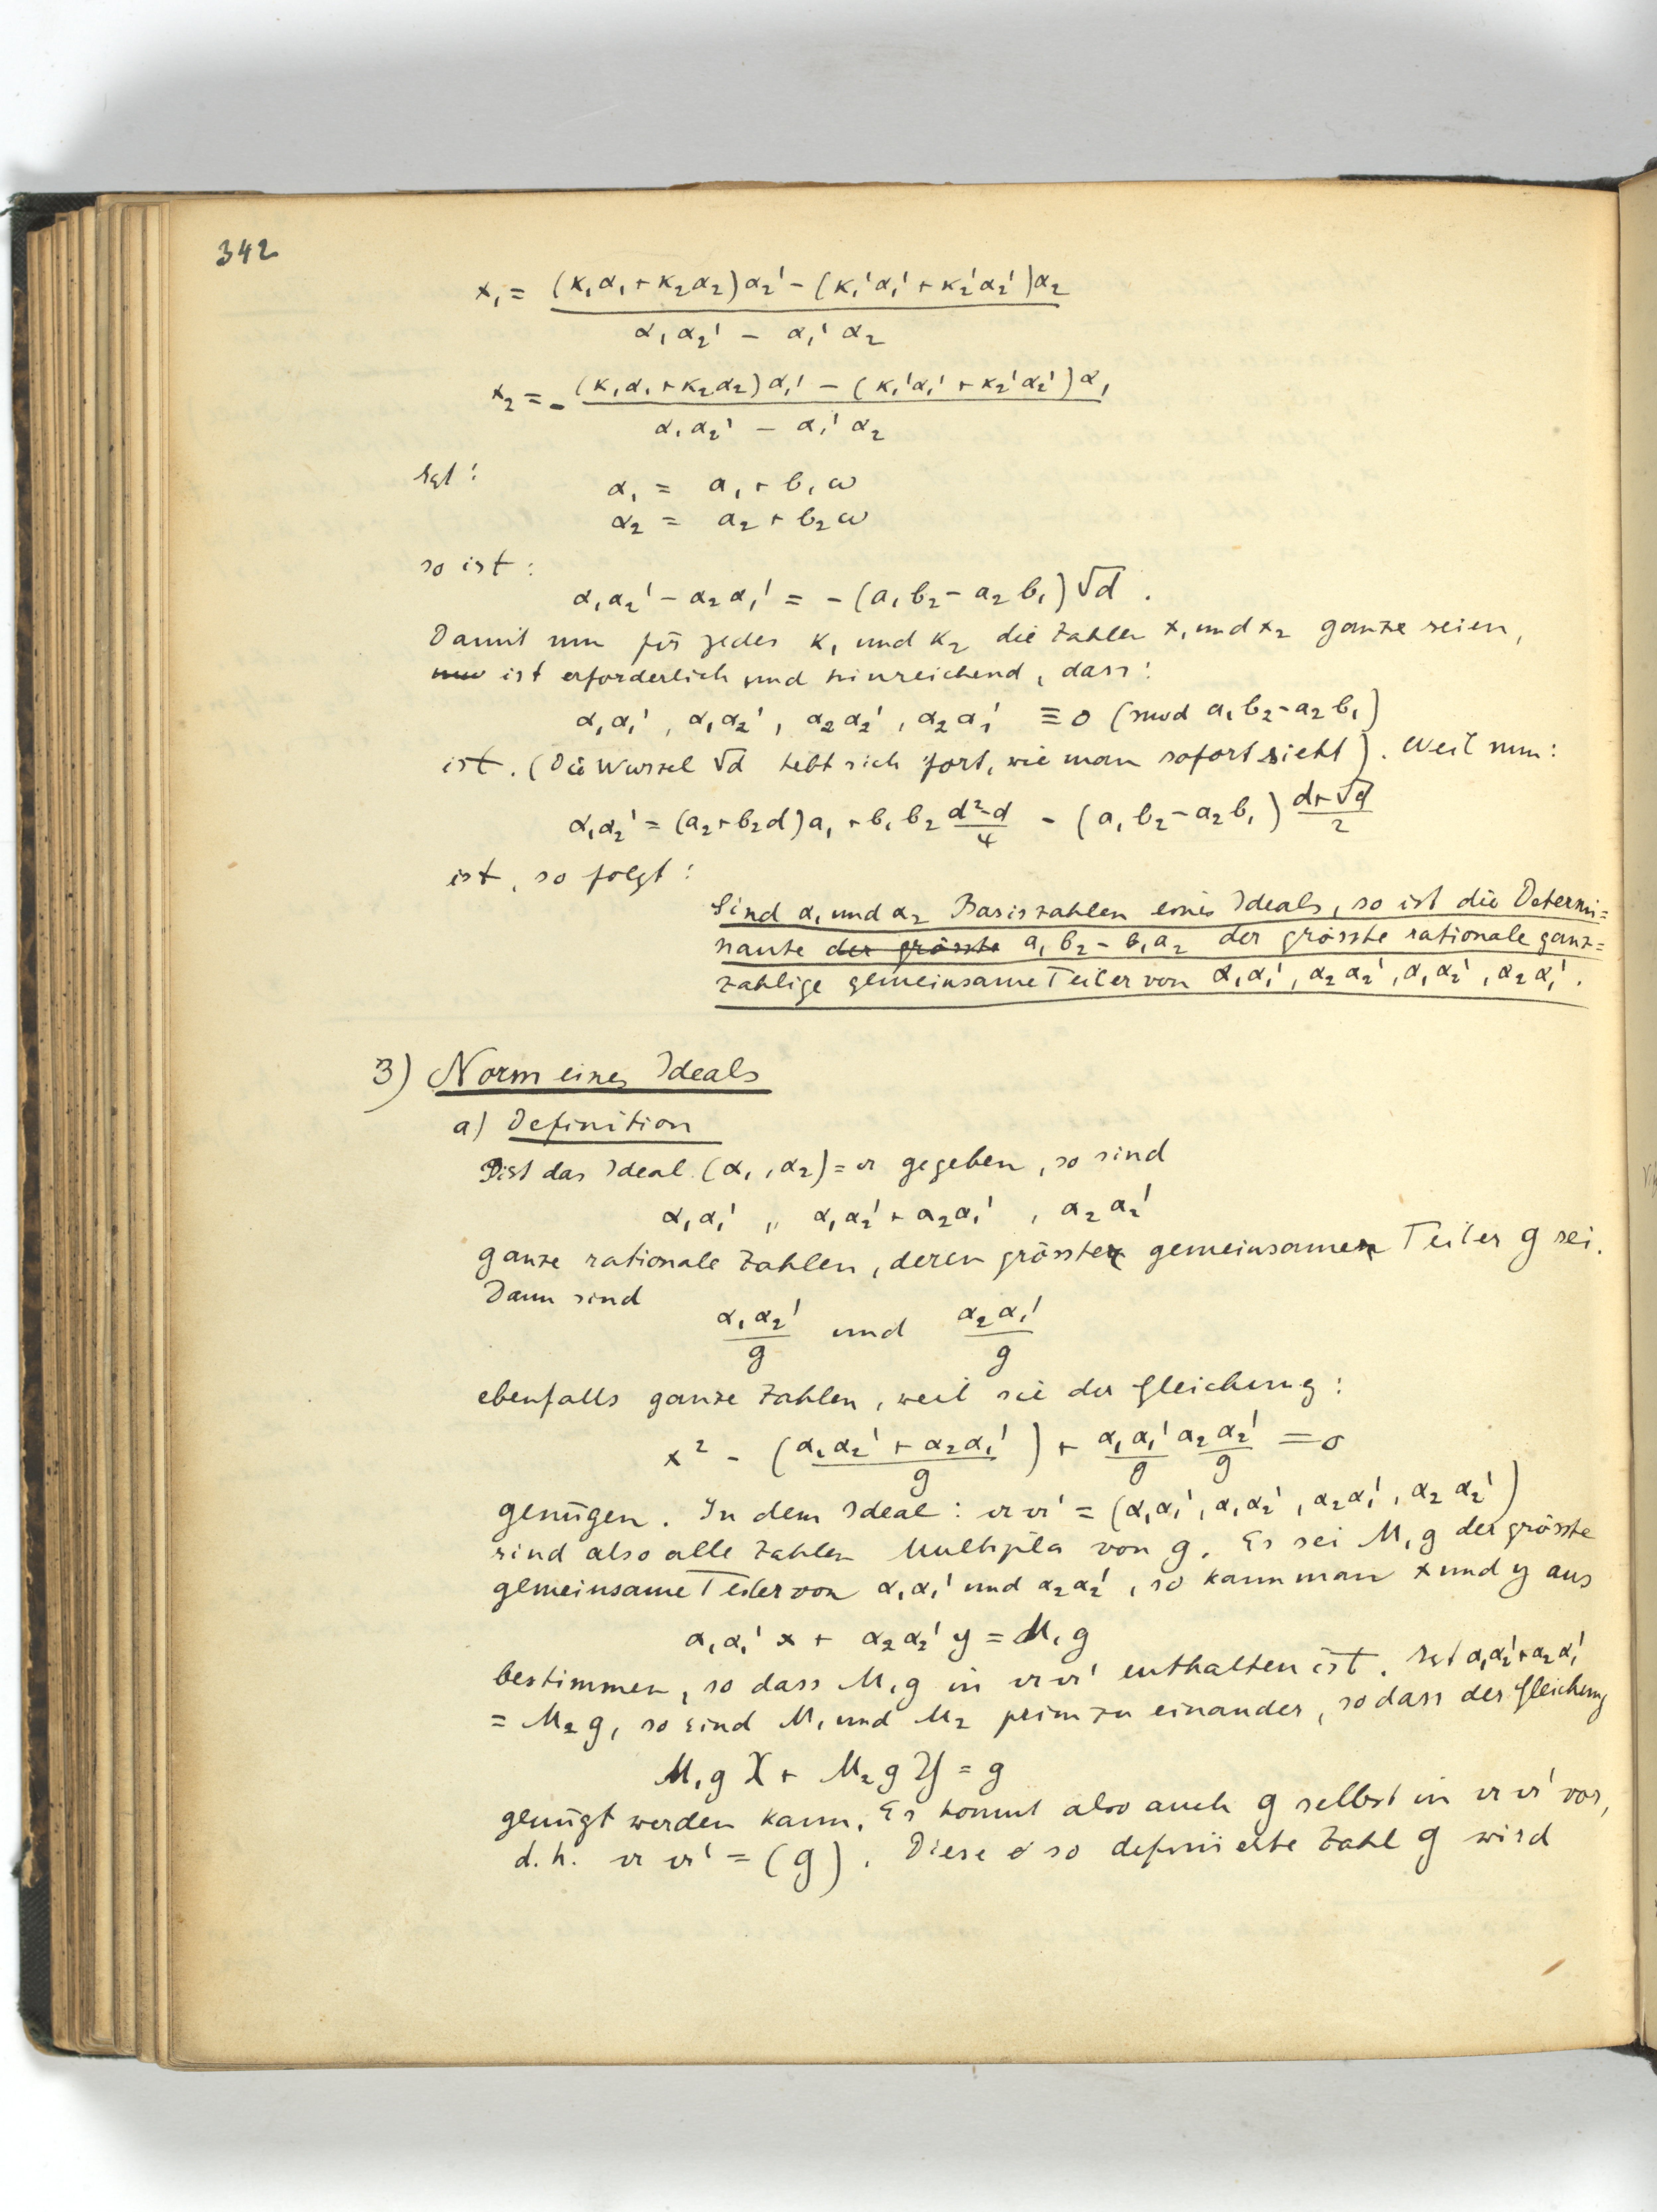 342
x₁ = ((κ₁α₁ + κ₂α₂)α₂' − (κ₁'α₁' + κ₂'α₂')α₂) / (α₁α₂' − α₁'α₂)
x₂ = − ((κ₁α₁ + κ₂α₂)α₁' − (κ₁'α₁' + κ₂'α₂')α₁) / (α₁α₂' − α₁'α₂)
Ist: α₁ = a₁ + b₁ω
α₂ = a₂ + b₂ω
so ist:
α₁α₂' − α₂α₁' = −(a₁b₂ − a₂b₁)√d .
Damit nun für jedes κ₁ und κ₂ die Zahlen x₁ und x₂ ganze seien,
ist erforderlich und hinreichend, dass:
α₁α₁', α₁α₂', α₂α₂', α₂α₁' ≡ 0 (mod a₁b₂ − a₂b₁)
ist. (Die Wurzel √d hebt sich fort, wie man sofort sieht). Weil nun:
α₁α₂' = (a₂ + b₂d)a₁ + b₁b₂ (d²−d)/4 − (a₁b₂ − a₂b₁) (d+√d)/2
ist, so folgt:
Sind α₁ und α₂ Basiszahlen eines Ideals, so ist die Determi=
nante der grösste a₁b₂ − b₁a₂ der grösste rationale ganz=
zahlige gemeinsame Teiler von α₁α₁', α₂α₂', α₁α₂', α₂α₁'.
3) Norm eines Ideals
a) Definition
Ist das Ideal (α₁, α₂) = 𝔞 gegeben, so sind
α₁α₁' , α₁α₂' + α₂α₁' , α₂α₂'
ganze rationale Zahlen, deren grösster gemeinsamer Teiler g sei.
Dann sind
α₁α₂'/g und α₂α₁'/g
ebenfalls ganze Zahlen, weil sie der Gleichung:
x² − ((α₁α₂' + α₂α₁')/g) + (α₁α₁'/g) (α₂α₂'/g) = 0
genügen. In dem Ideal: 𝔞𝔞' = (α₁α₁', α₁α₂', α₂α₁', α₂α₂')
sind also alle Zahlen Multipla von g. Es sei M₁g der grösste
gemeinsame Teiler von α₁α₁' und α₂α₂', so kann man x und y aus
α₁α₁'x + α₂α₂'y = M₁g
bestimmen, so dass M₁g in 𝔞𝔞' enthalten ist. Ist α₁α₂'+α₂α₁'
= M₂g, so sind M₁ und M₂ prim zu einander, so dass der Gleichung
M₁gX + M₂gY = g
genügt werden kann. Es kommt also auch g selbst in 𝔞𝔞' vor,
d.h. 𝔞𝔞' = (g). Diese so definierte Zahl g wird